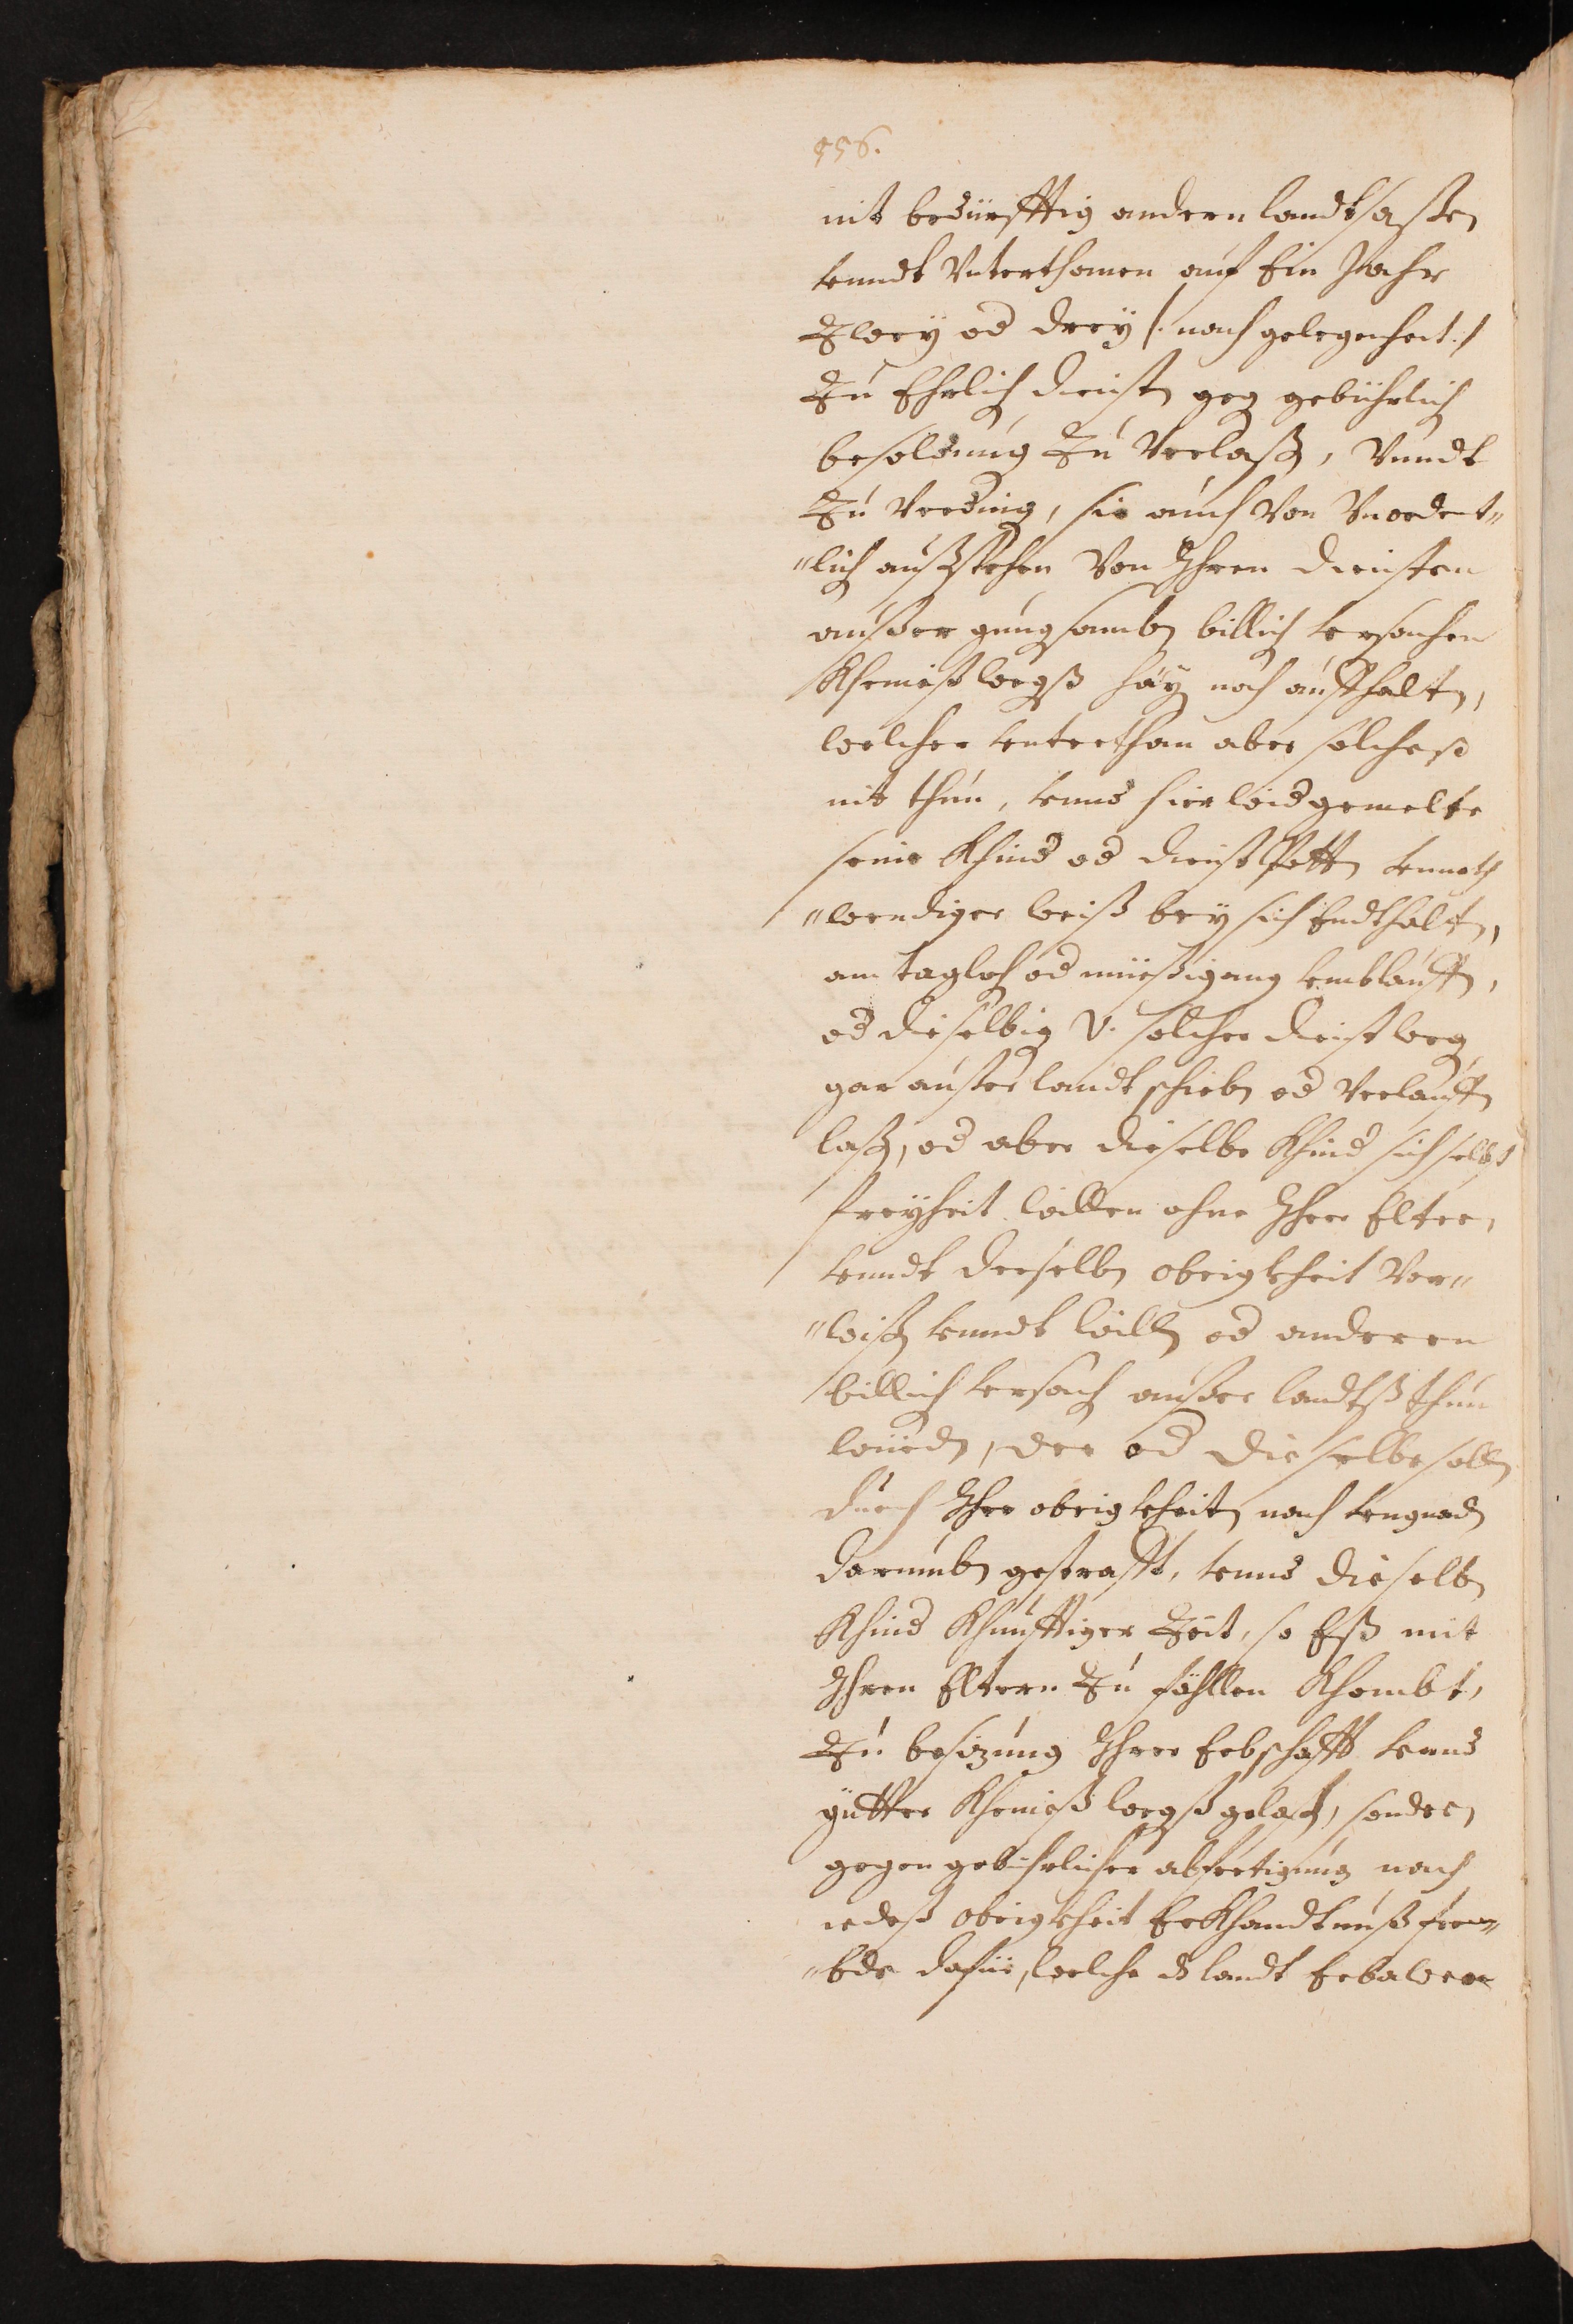 956.
nit bedürfftig andern landtsassen
vnndt Vnterthanen auf Ein Jahr
Zwey od drey /: nach gelegenheit :/
Zu Ehrlich dienst geg gebührlich
besoldung Zu Verlassn, Vnndt
Zu Verding, sie auch Von Vnordent„
„lich außstehen Von Ihren diensten
ausser gnugsamben billich vrsachen
Kheineß wegß
welcher vnterthan aber solcheß
nit thun, vnnd hierwid gemelte
seine Khind od vnnoth
„wendiger weiß bey sich Endthaltn,
am tagloh od müessigang vmblauffn,
od dieselbig V. solcher dienst weg
gar ausser landt schiebn od Verlauffn
lassn, od aber dieselbe Khind sich selbst
freyheit willen ohne Ihrer Eltern
vnndt derselbn obrigkheit Vor„
„wissn vnndt willn od anderen
billich vrsach ausser landtß thun
würdn, der od dieselbe solln
durch Ihre obrigkheitn nach vngnadn
darumbn gestrafft, vnnd dieselbn
Khind Khünfftiger Zeit, so Eß mit
Ihren Eltern Zu föhllen Khombt,
Zu besizung Ihrer Erbschafft vnnd
güetter Kheineß wegß gelassn, sondern
gegen gebührlicher abfertigung nach
iedeß obrigkheit Erkhandtnuß frem„
„bde dafür, welche dß landt Erbawen